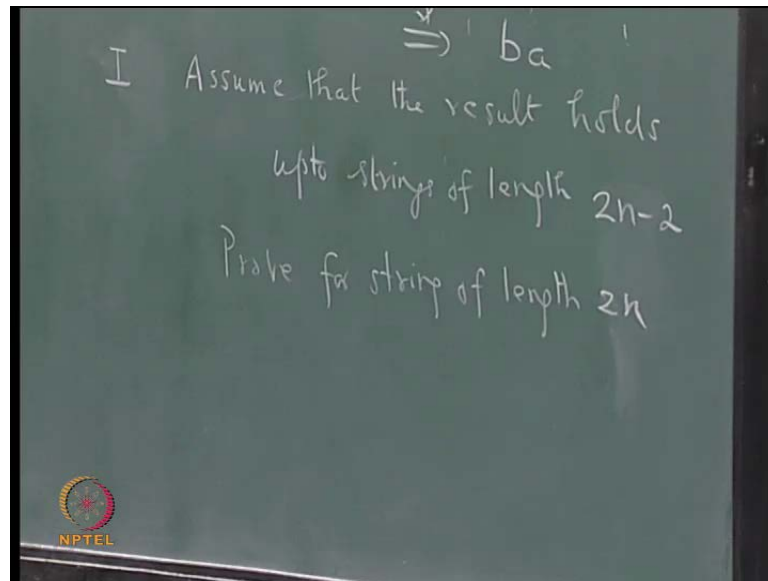 ⇒ ba
I Assume that the result holds
upto strings of length 2n-2
Prove for string of length 2n
NPTEL